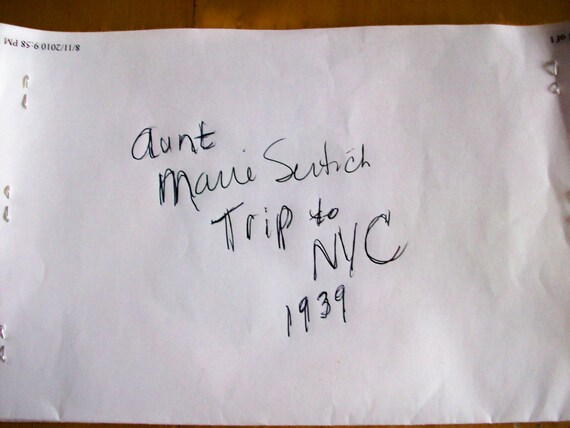 8/11/2010 9:58 PM
aunt
Marie Sertich
Trip to
NYC
1939